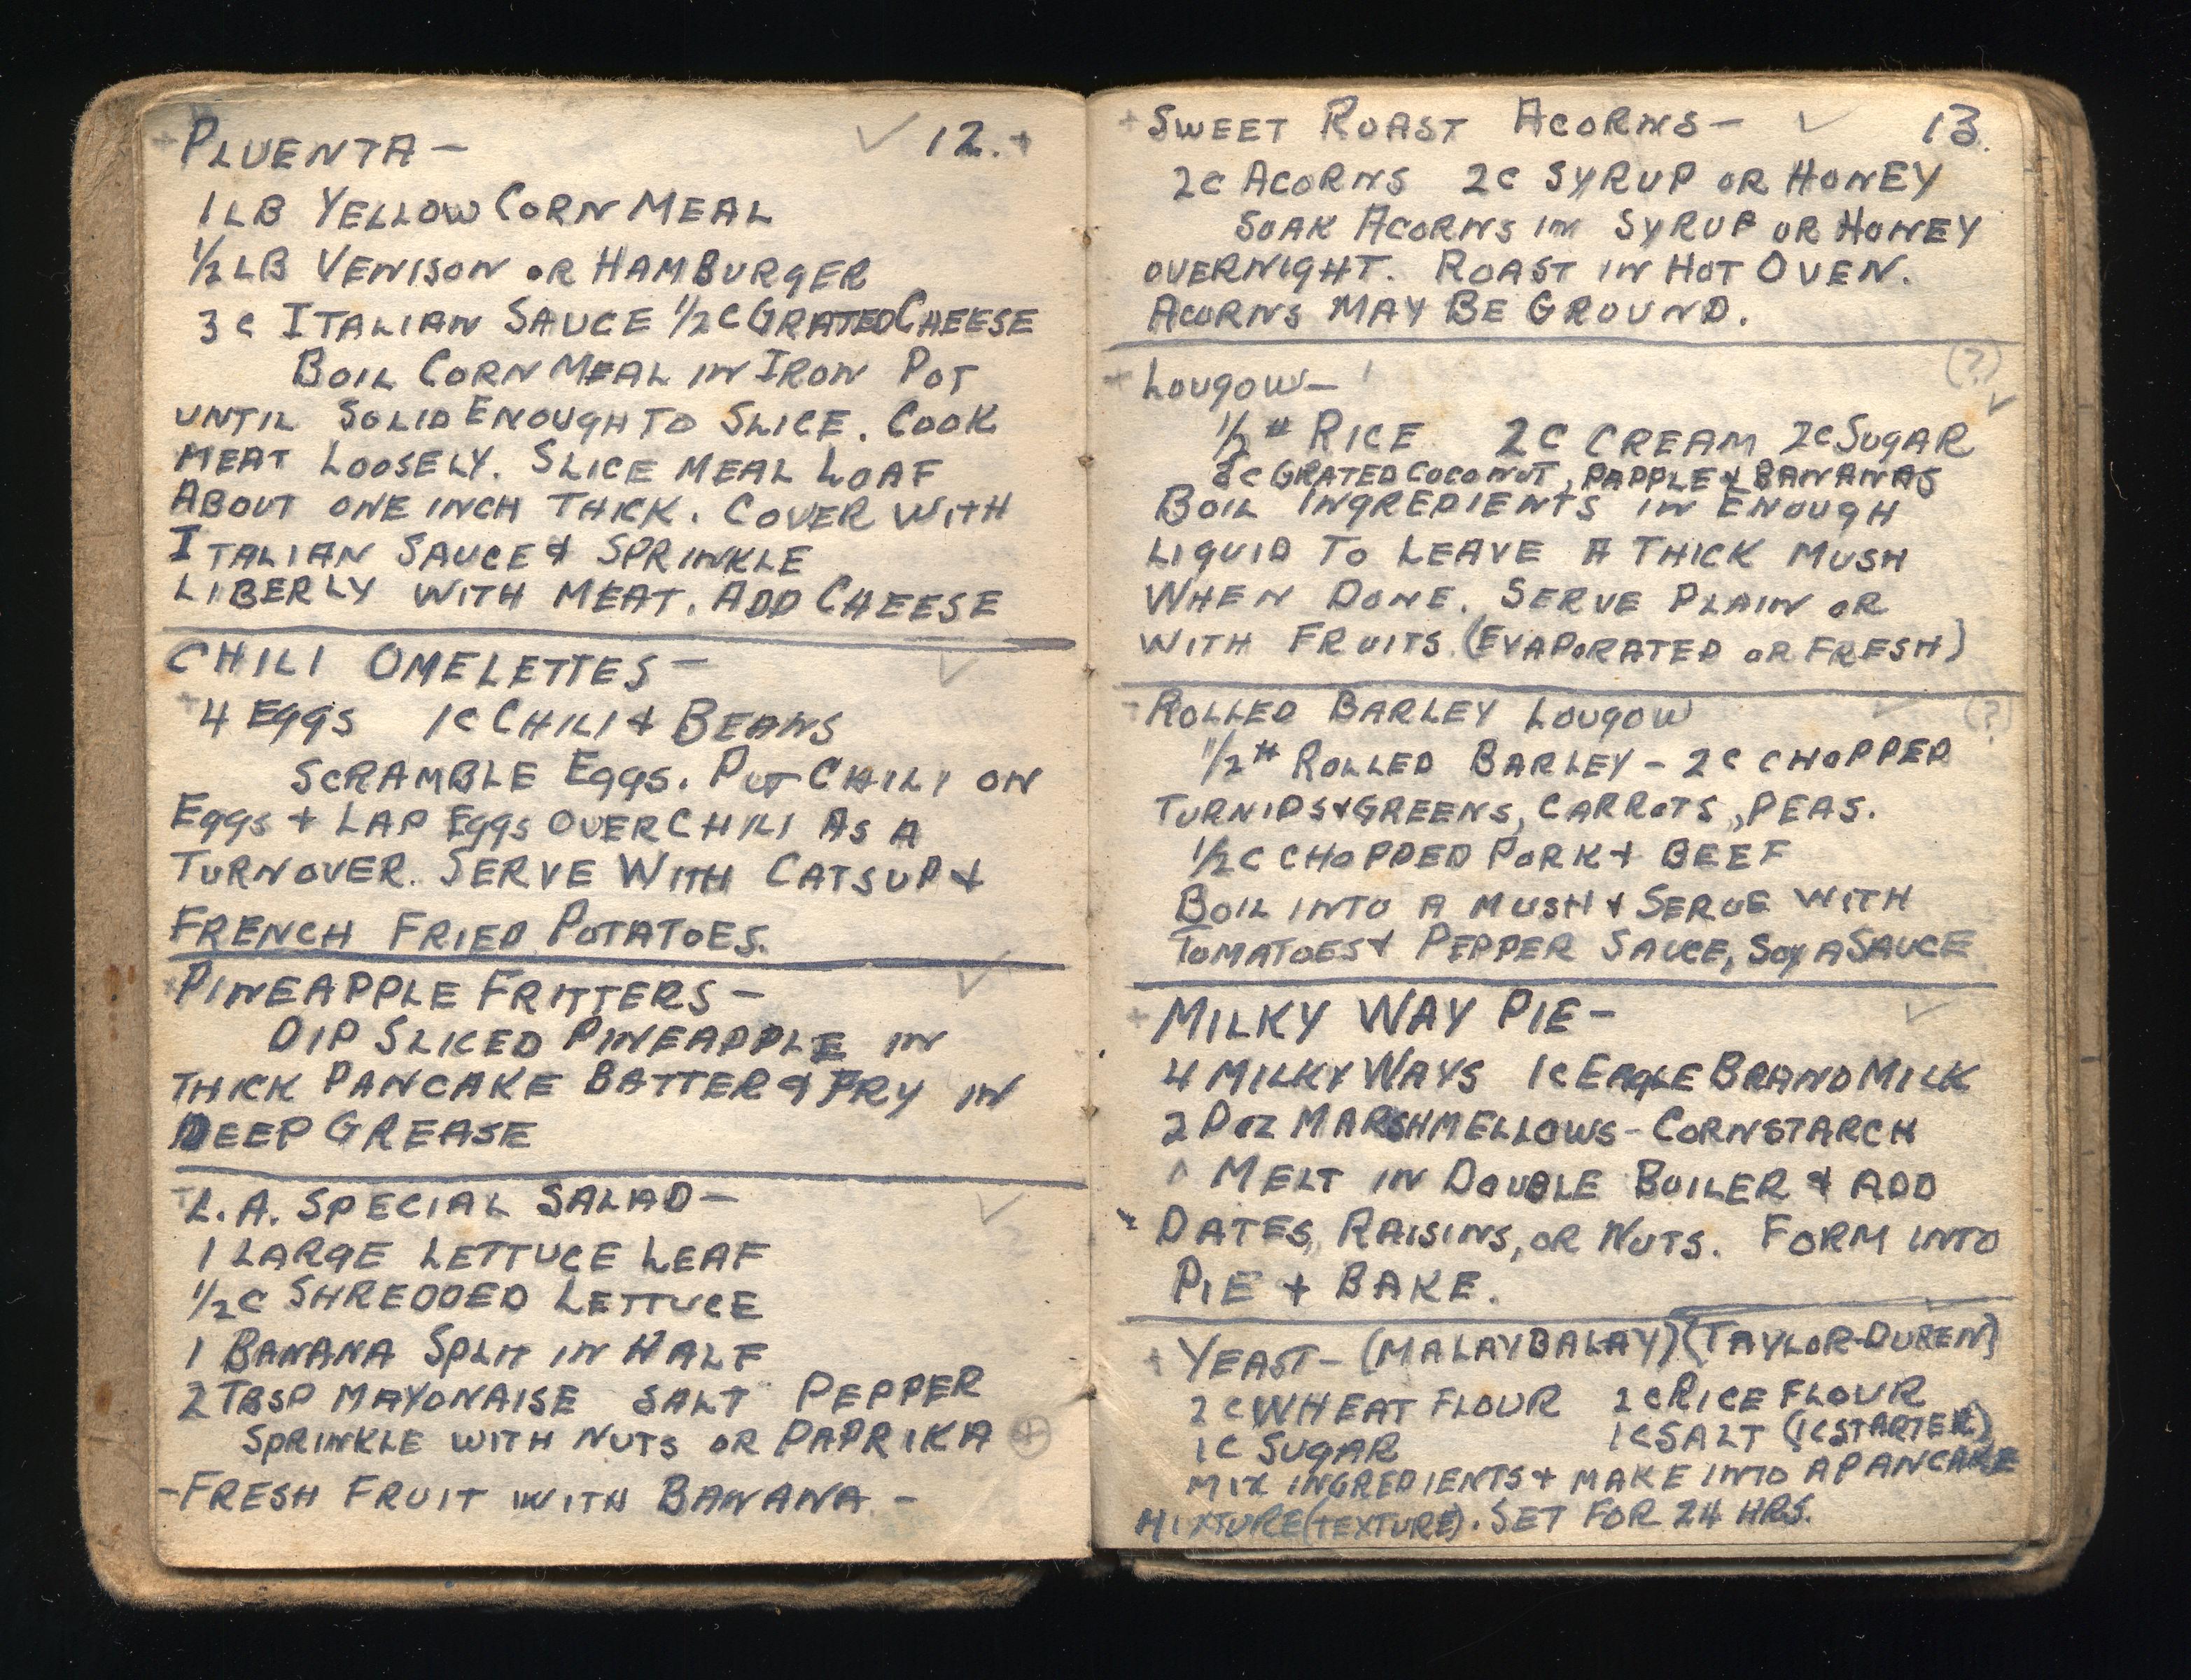 PLUENTA — 12.
1 LB YELLOW CORN MEAL
½ LB VENISON OR HAMBURGER
3 C ITALIAN SAUCE ½ C GRATED CHEESE
BOIL CORN MEAL IN IRON POT
UNTIL SOLID ENOUGH TO SLICE. COOK
MEAT LOOSELY. SLICE MEAL LOAF
ABOUT ONE INCH THICK. COVER WITH
ITALIAN SAUCE & SPRINKLE
LIBERLY WITH MEAT. ADD CHEESE
CHILI OMELETTES —
4 EGGS 1 C CHILI & BEANS
SCRAMBLE EGGS. PUT CHILI ON
EGGS + LAP EGGS OVER CHILI AS A
TURNOVER. SERVE WITH CATSUP &
FRENCH FRIED POTATOES.
PINEAPPLE FRITTERS —
DIP SLICED PINEAPPLE IN
THICK PANCAKE BATTER & FRY IN
DEEP GREASE
L.A. SPECIAL SALAD —
1 LARGE LETTUCE LEAF
½ C SHREDDED LETTUCE
1 BANANA SPLIT IN HALF
2 TBSP MAYONAISE SALT PEPPER
SPRINKLE WITH NUTS OR PAPRIKA
- FRESH FRUIT WITH BANANA -
SWEET ROAST ACORNS — 13.
2 C ACORNS 2 C SYRUP OR HONEY
SOAK ACORNS IN SYRUP OR HONEY
OVERNIGHT. ROAST IN HOT OVEN.
ACORNS MAY BE GROUND.
LOUGOW — (?)
½ # RICE 2 C CREAM 2 C SUGAR
C GRATED COCONUT, PAPPLE & BANANAS
BOIL INGREDIENTS IN ENOUGH
LIQUID TO LEAVE A THICK MUSH
WHEN DONE. SERVE PLAIN OR
WITH FRUITS (EVAPORATED OR FRESH)
ROLLED BARLEY LOUGOW (?)
½ # ROLLED BARLEY — 2 C CHOPPED
TURNIPS & GREENS, CARROTS, PEAS.
½ C CHOPPED PORK & BEEF
BOIL INTO A MUSH & SERVE WITH
TOMATOES & PEPPER SAUCE, SOYA SAUCE
MILKY WAY PIE —
4 MILKY WAYS 1 C EAGLE BRAND MILK
2 DOZ MARSHMELLOWS — CORNSTARCH
MELT IN DOUBLE BOILER & ADD
DATES, RAISINS, OR NUTS. FORM INTO
PIE + BAKE.
YEAST — (MALAYBALAY) (TAYLOR-DUREN)
2 C WHEAT FLOUR 2 C RICE FLOUR
1 C SUGAR 1 C SALT (1 C STARTER)
MIX INGREDIENTS & MAKE INTO A PANCAKE
MIXTURE (TEXTURE). SET FOR 24 HRS.